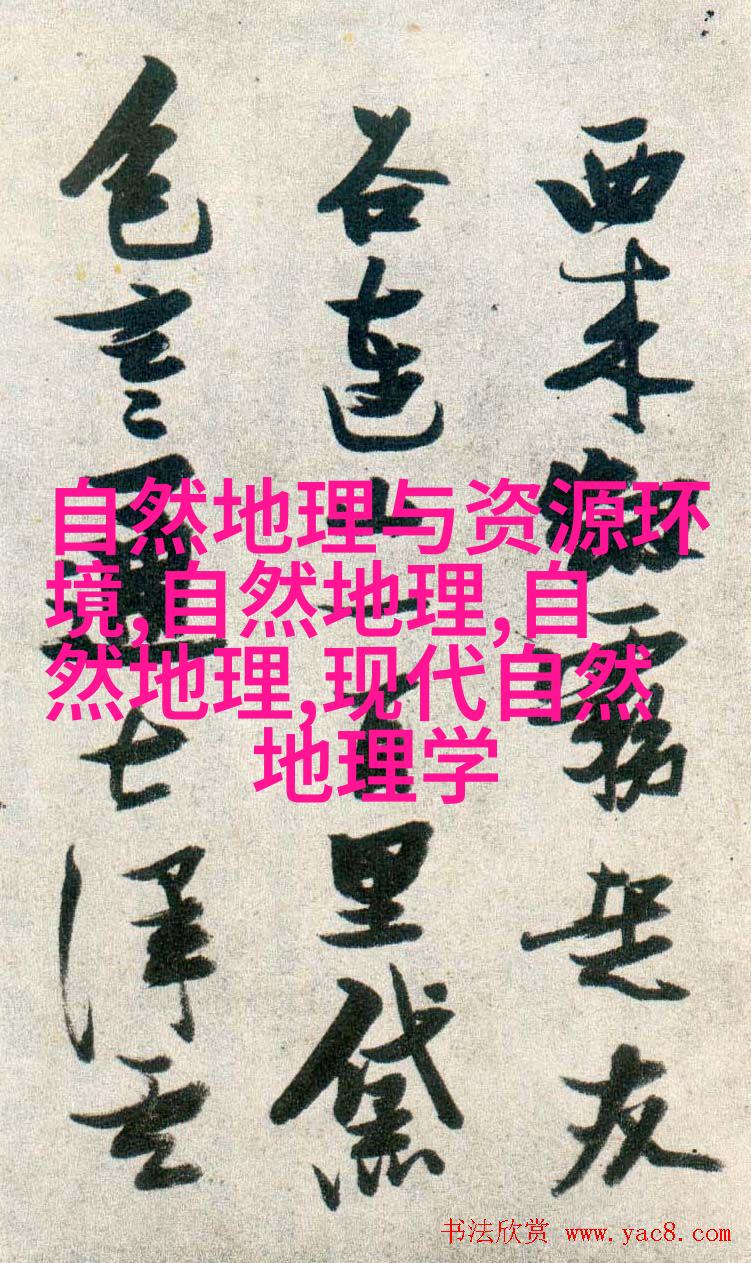 自然地理与资源环
境,自然地理,自
然地理,现代自然
地理学
西来霧是友
谷連山一百里黛
色言七澤
书法欣赏 www.yac8.com